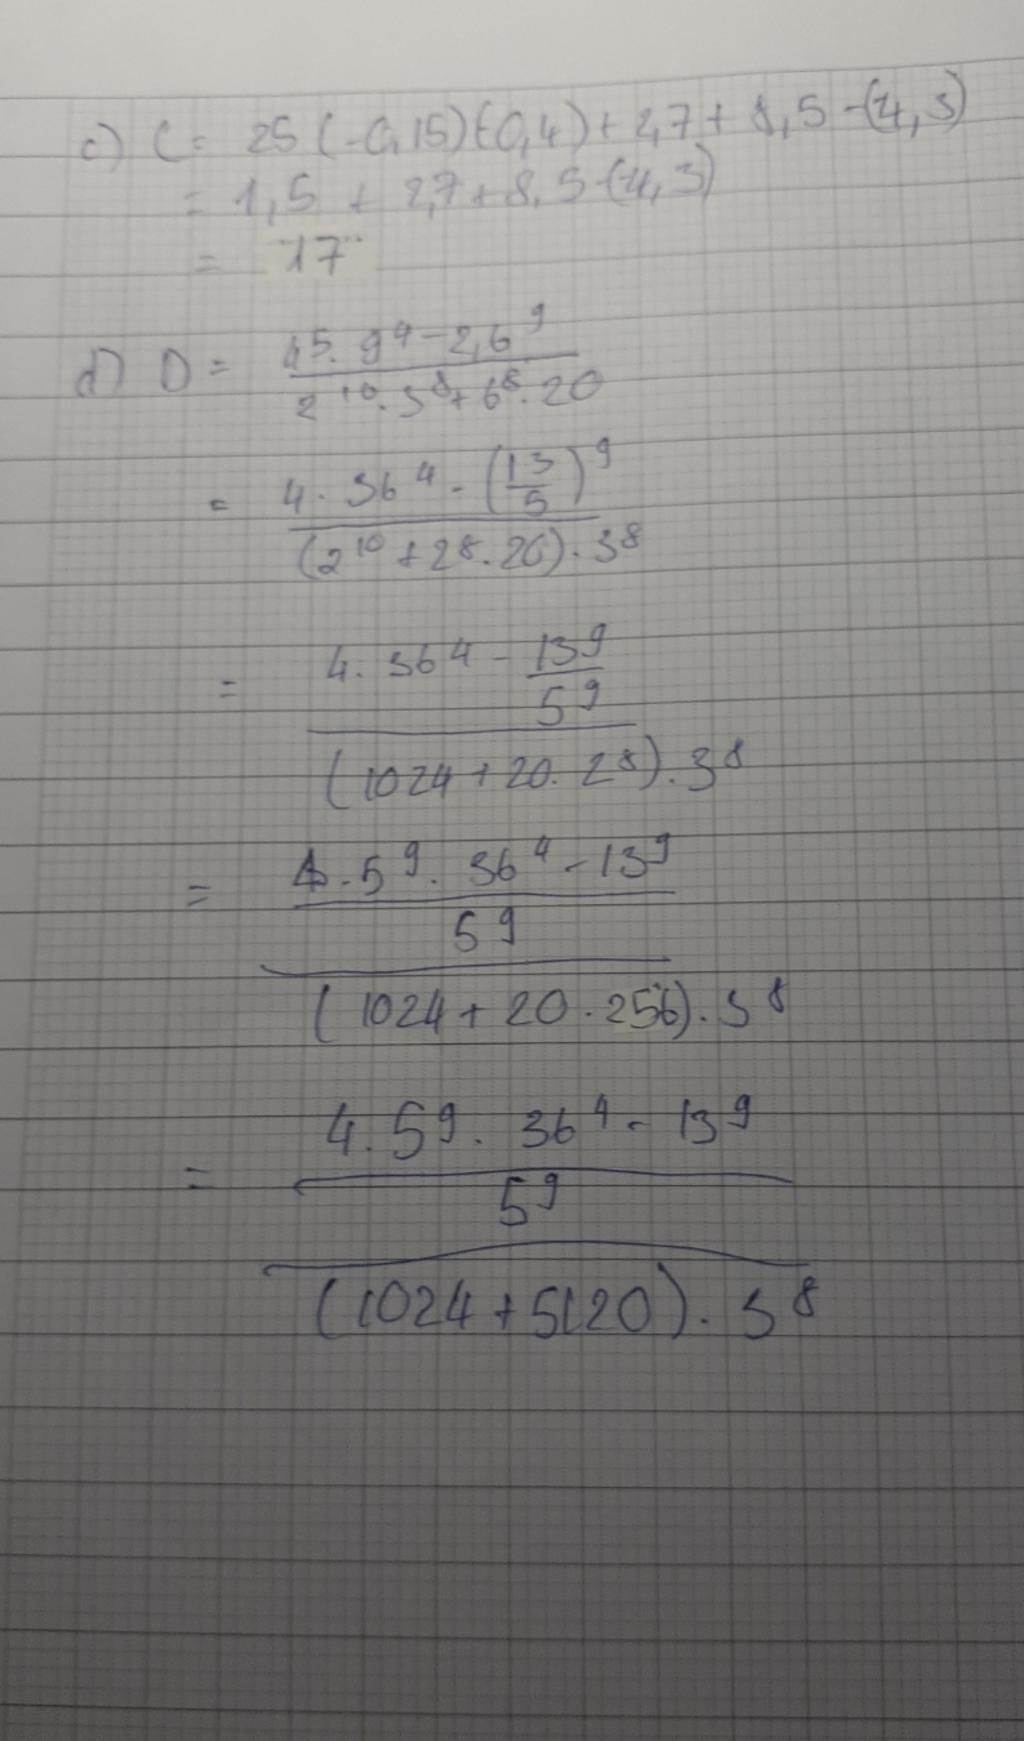 c) C = 25 (-0,15)(-0,4) + 2,7 + 8,5 - (-4,3)
= 1,5 + 2,7 + 8,5 - (-4,3)
= 17
d) D = \frac{4^5 . 9^4 - 2,6^9}{2^{10} . 3^8 + 6^8 . 20}
= \frac{4 . 36^4 - (\frac{13}{5})^9}{(2^{10} + 2^8 . 20) . 3^8}
= \frac{4 . 36^4 - \frac{13^9}{5^9}}{(1024 + 20 . 2^8) . 3^8}
= \frac{\frac{4 . 5^9 . 36^4 - 13^9}{5^9}}{(1024 + 20 . 256) . 3^8}
= \frac{\frac{4 . 5^9 . 36^4 - 13^9}{5^9}}{(1024 + 5120) . 3^8}